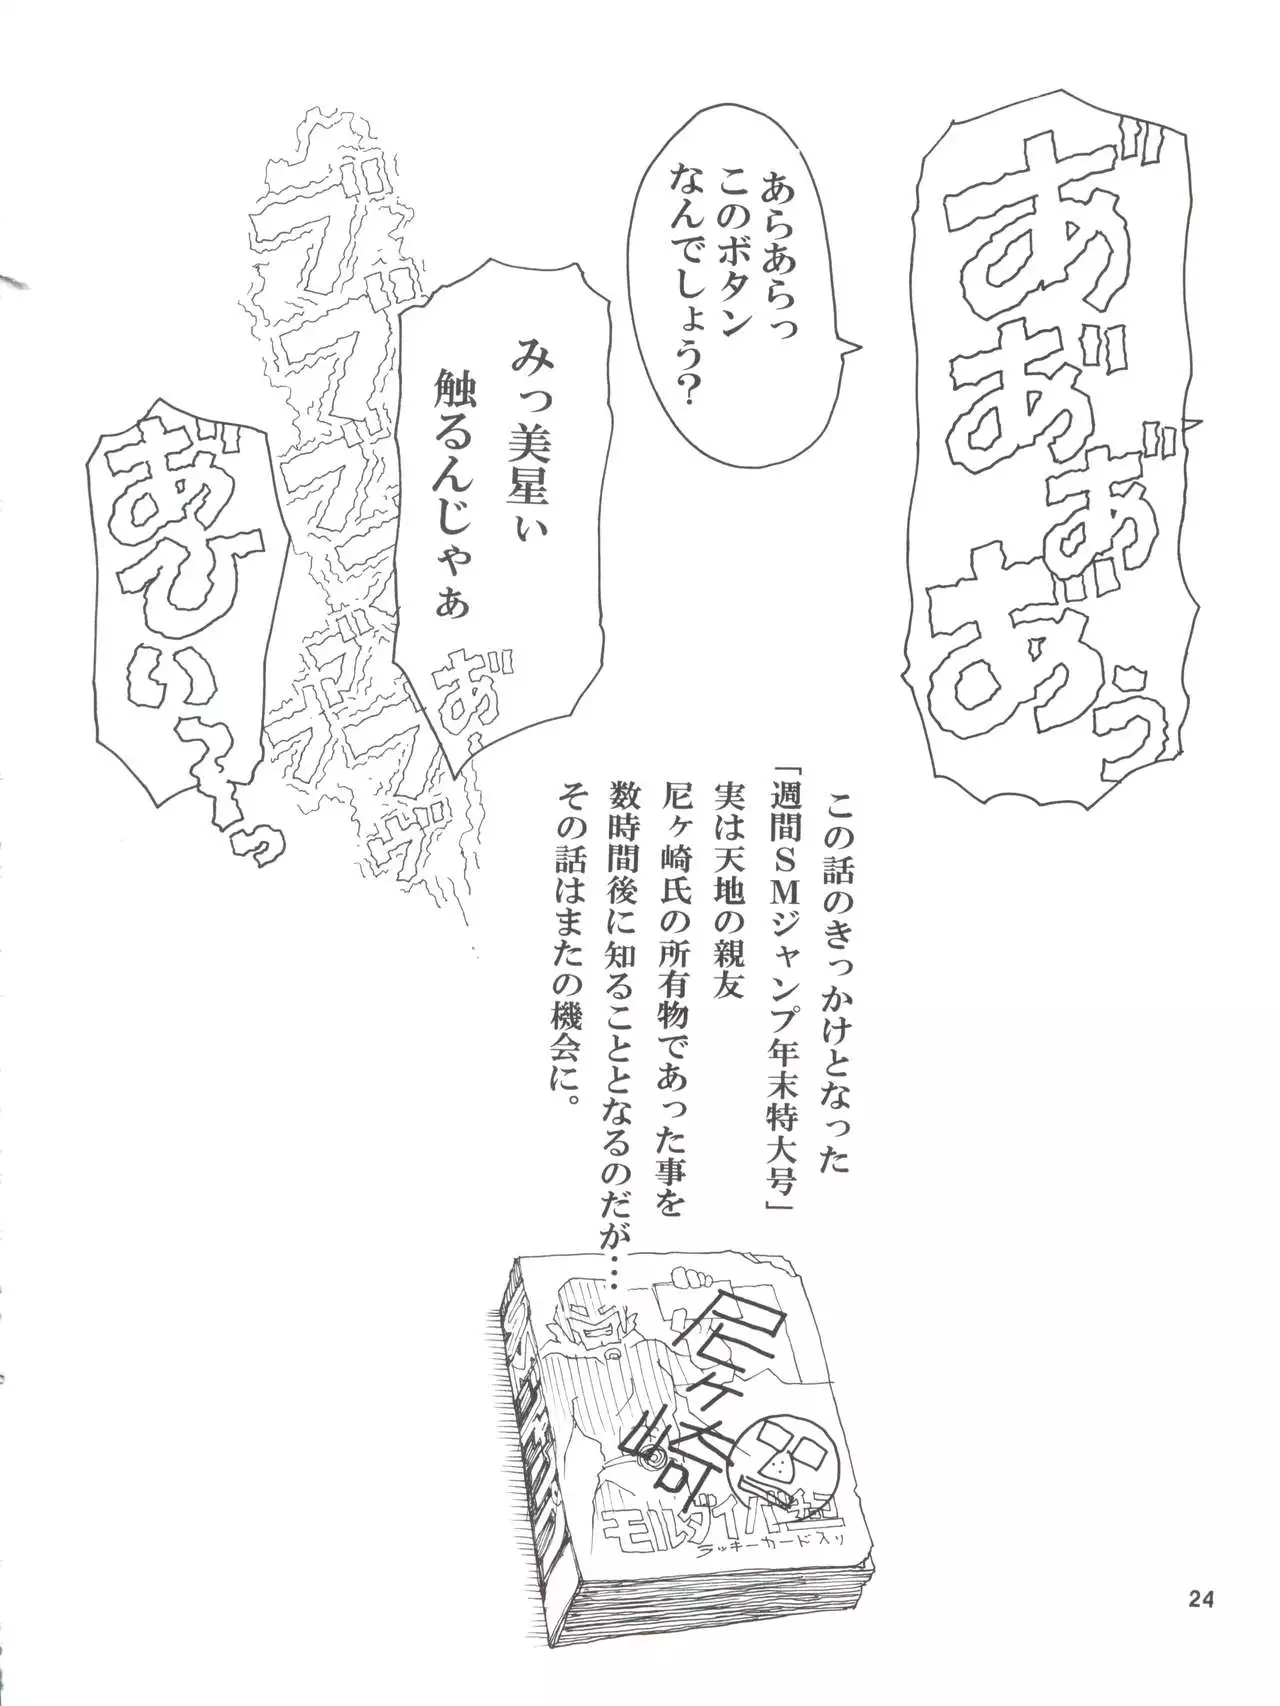 あ゛あ゛あ゛あ゛ぅ
あらあらっ
このボタン
なんでしょう？
みっ美星ぃ
触るんじゃぁ
あ゛ー
あ゛ひいーっ
この話のきっかけとなった
「週間ＳＭジャンプ年末特大号」
実は天地の親友
尼ヶ崎氏の所有物であった事を
数時間後に知ることとなるのだが…
…
その話はまたの機会に。
尼ヶ崎
モルダイバー
ラッキーカード入り
24